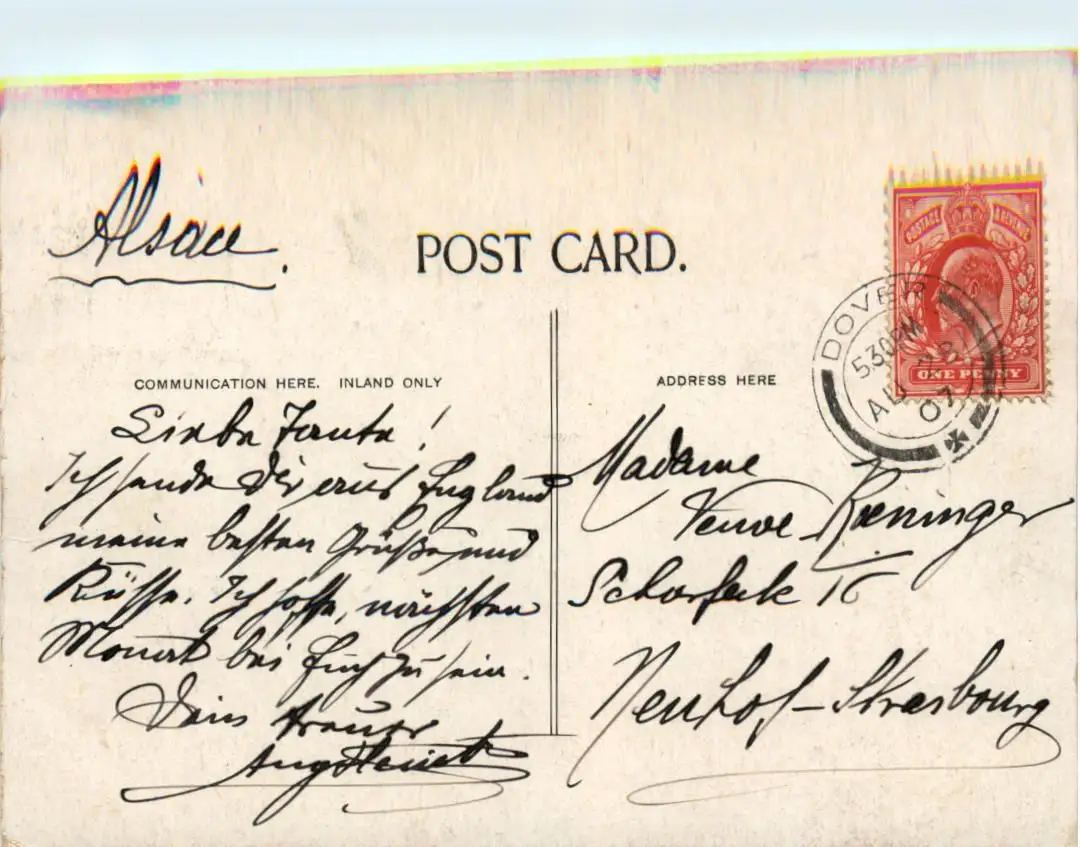 Alsace.
POST CARD.
POSTAGE & REVENUE
ONE PENNY
DOVER
530PM
AU
07
COMMUNICATION HERE. INLAND ONLY
Liebe Tante!
Ich sende Dir aus England
meine besten Grüße und
Küsse. Ich hoffe, nächsten
Monat bei Euch zu sein.
Dein treuer
ADDRESS HERE
Madame
Veuve Rœninger
Schorfeck 16
Neuhof-Strasbourg